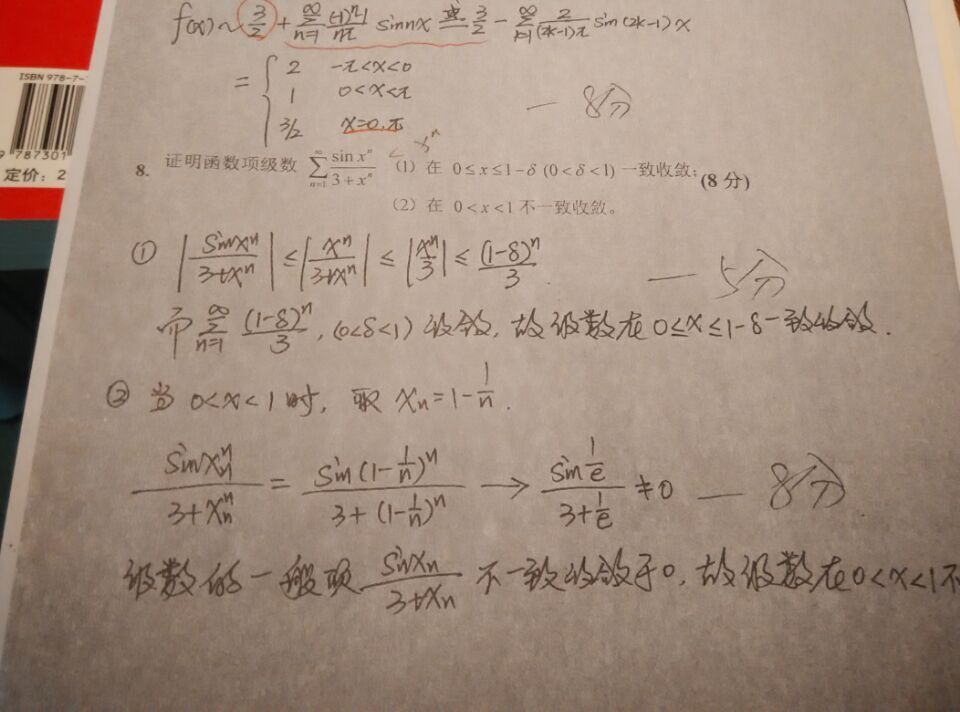 f(x)~ 3/2 + ∞Σn=1 (-1)^n-1/nπ sinnx = 3/2 - ∞Σk=1 2/(2k-1)π sin(2k-1)x
= { 2 -π<x<0
1 0<x<π
3/2 x=0,π
— 8分
ISBN 978-7-
9 787301
定价: 2
< x^n
8. 证明函数项级数 ∞Σn=1 sin x^n/3+x^n (1) 在 0≤x≤1-δ (0<δ<1) 一致收敛; (8分)
(2) 在 0<x<1 不一致收敛。
① |sinx^n/3+x^n| ≤ |x^n/3+x^n| ≤ |x^n/3| ≤ (1-δ)^n/3 . — 5分
而 ∞Σn=1 (1-δ)^n/3, (0<δ<1) 收敛, 故级数在 0≤x≤1-δ 一致收敛.
② 当 0<x<1 时, 取 xn=1-1/n.
sinxn^n/3+xn^n = sin(1-1/n)^n/3+(1-1/n)^n → sin1/e/3+1/e ≠0 — 8分
级数的一般项 sinxn/3+xn 不一致收敛于0, 故级数在 0<x<1 不